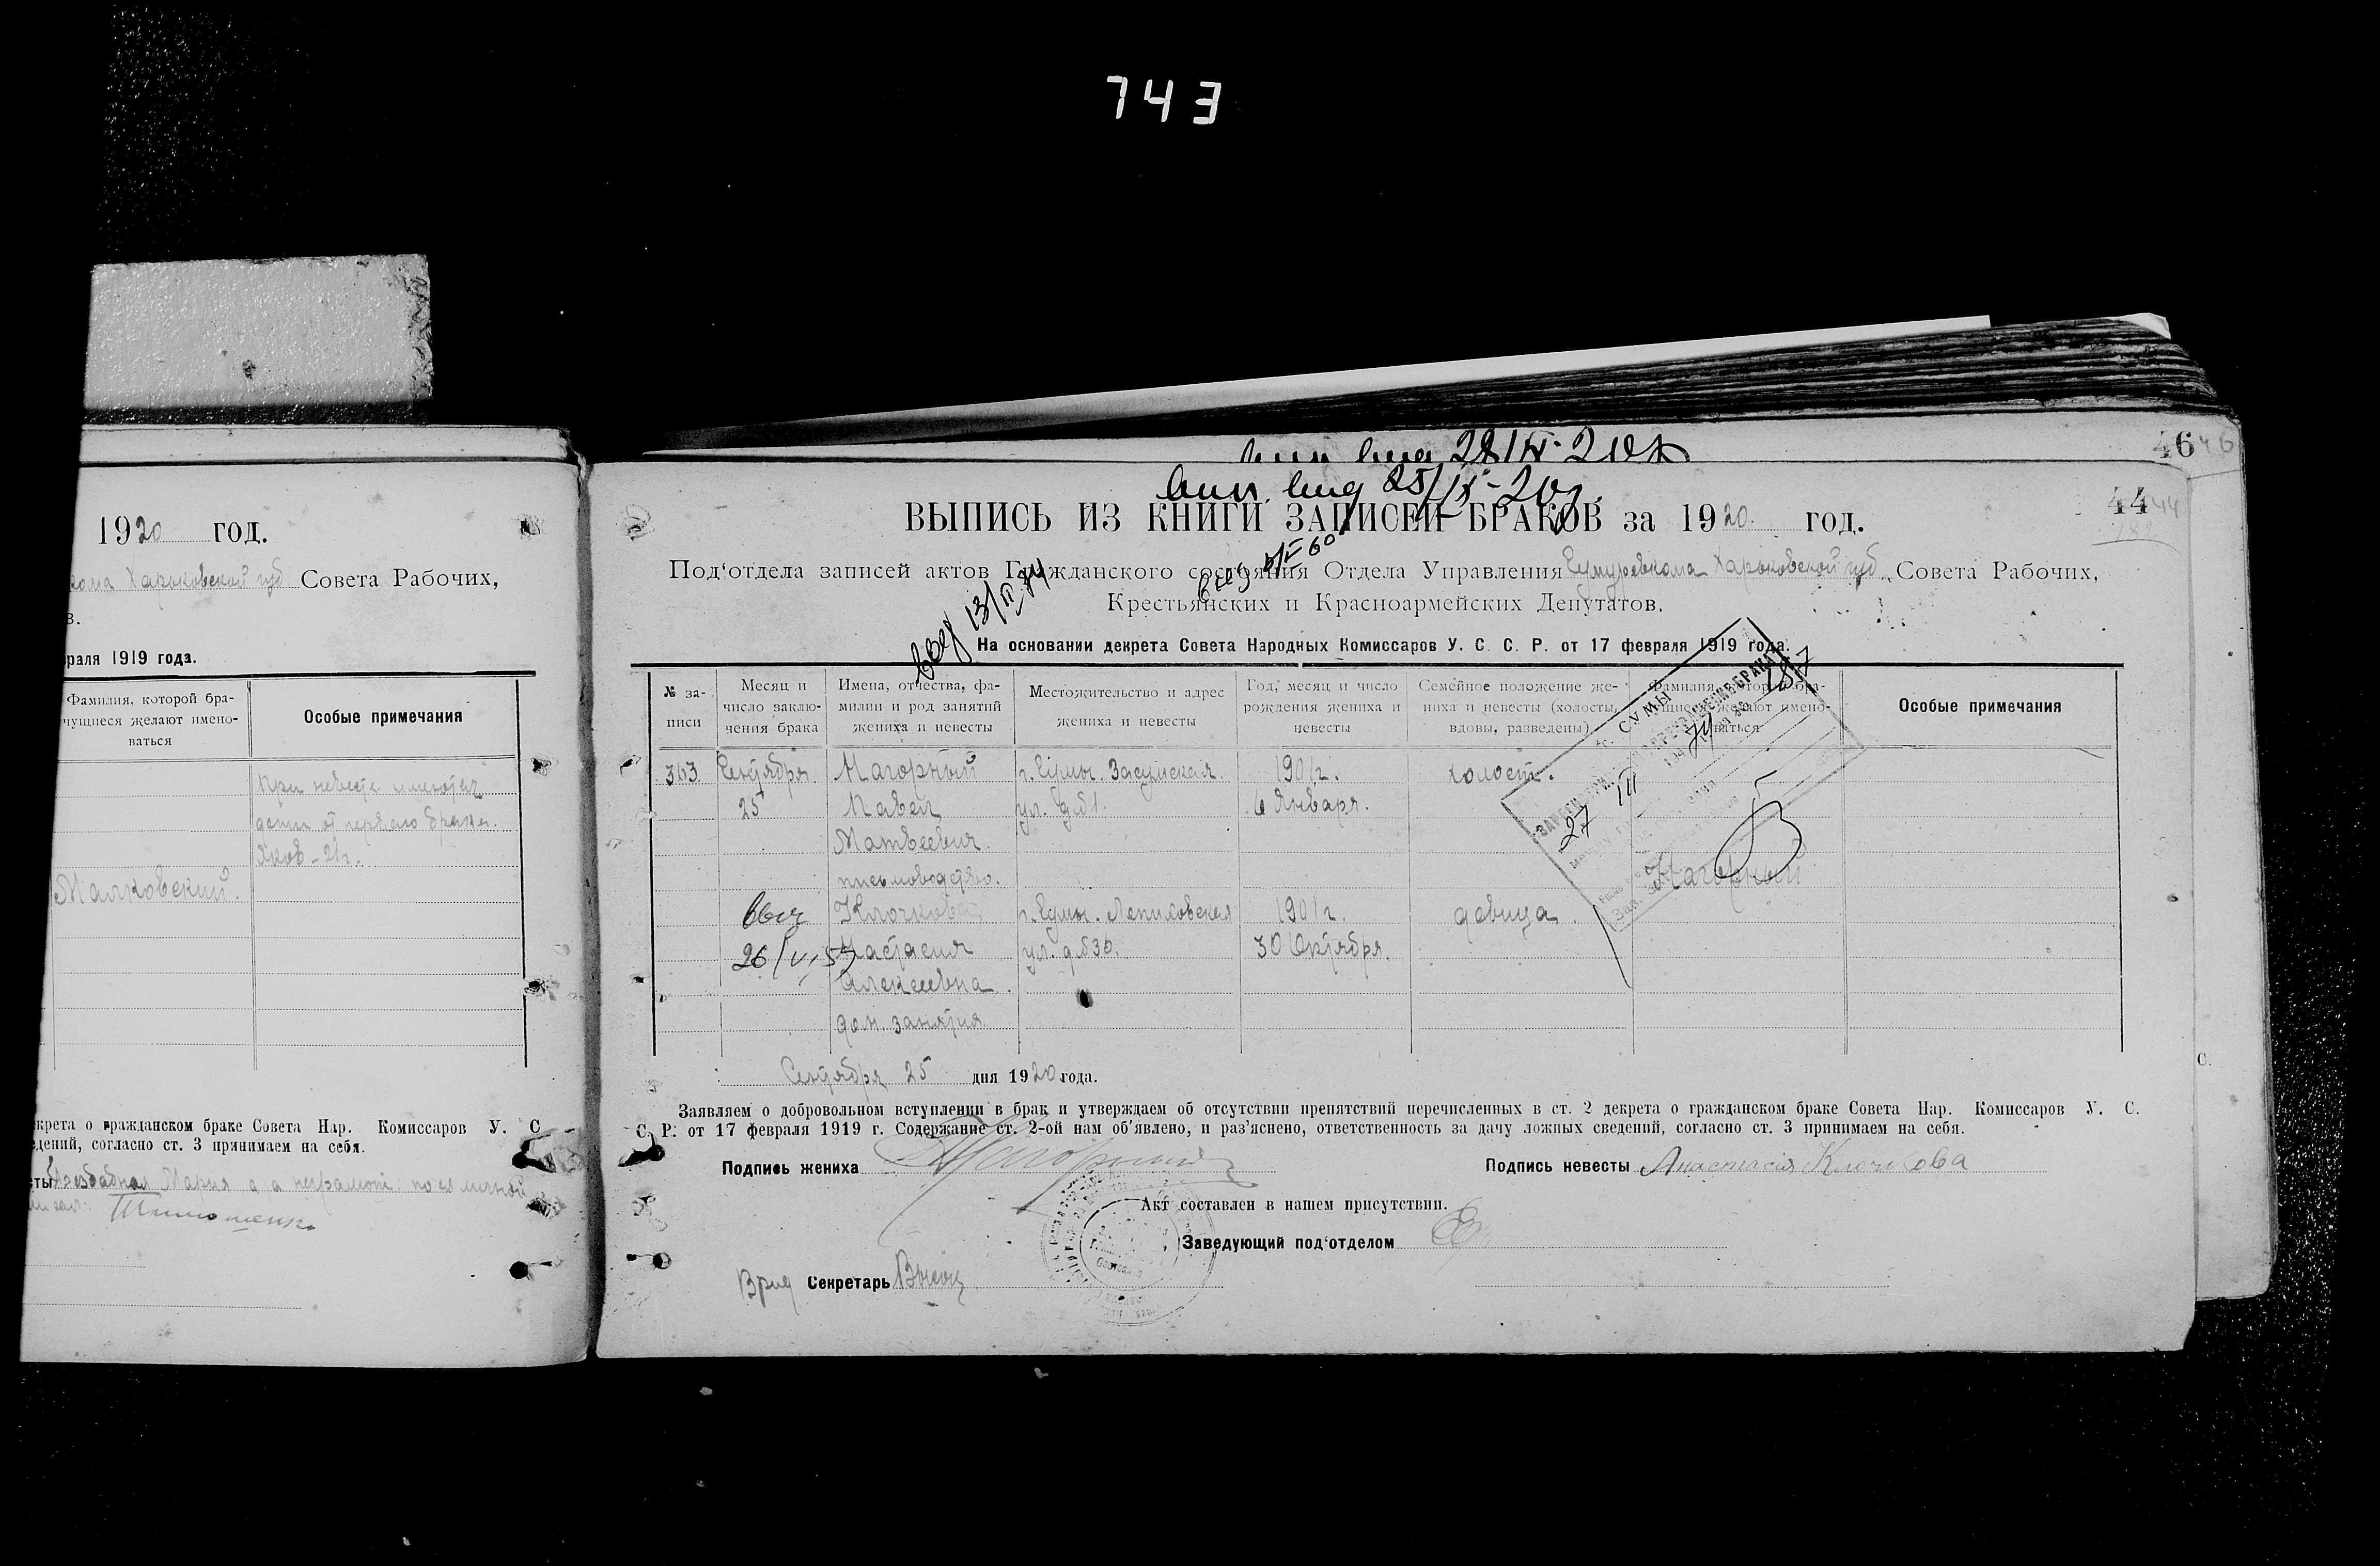 743
46
1920 год.
Харьковской губ Совета Рабочих,
в.
враля 1919 года.
Фамилия, которой бра-
чущиеся желают имено-
ваться
Особые примечания
При невесте имеются
дети от первого брака.
Яков - 2 1 г.
Маяковский.
екрета о гражданском браке Совета Нар. Комиссаров У. С
едений, согласно ст. 3 принимаем на себя.
Мария а а неграмот. по ее личной
44
ВЫПИСЬ ИЗ КНИГИ ЗАПИСЕЙ БРАКОВ за 1920 год.
Под'отдела записей актов Гражданского состояния Отдела Управления Сумуревкома Харьковской губ. Совета Рабочих,
Крестьянских и Красноармейских Депутатов.
На основании декрета Совета Народных Комиссаров У. С. С. Р. от 17 февраля 1919 года.
№ за-
писи
Месяц и
число заклю-
чения брака
Имена, отчества, фа-
милии и род занятий
жениха и невесты
Местожительство и адрес
жениха и невесты
Год, месяц и число
рождения жениха и
невесты
Семейное положение же-
ниха и невесты (холосты,
вдовы, разведены)
Фамилия, которой бра-
чущиеся желают имено-
ваться
Особые примечания
г. СУМЫ
27 III
363 Сентября Нагорный г. Сумы. Засумская 1901 г. холост.
25 Павел ул. д. 61. 6 Января.
Матвеевич
письмоводство. Нагорный
Клочкова г. Сумы. 1901 г. девица
26/VI 57 Настасия ул. д. 636. 30 Октября.
Алексеевна
дом. занятия.
Сентября 25 дня 1920 года.
Заявляем о добровольном вступлении в брак и утверждаем об отсутствии препятствий перечисленных в ст. 2 декрета о гражданском браке Совета Нар. Комиссаров У. С.
С. Р. от 17 февраля 1919 г. Содержание ст. 2-ой нам об'явлено, и раз'яснено, ответственность за дачу ложных сведений, согласно ст. 3 принимаем на себя.
Подпись жениха Нагорный Подпись невесты Анастасия Клочкова
Акт составлен в нашем присутствии.
Заведующий под'отделом
Врид Секретарь